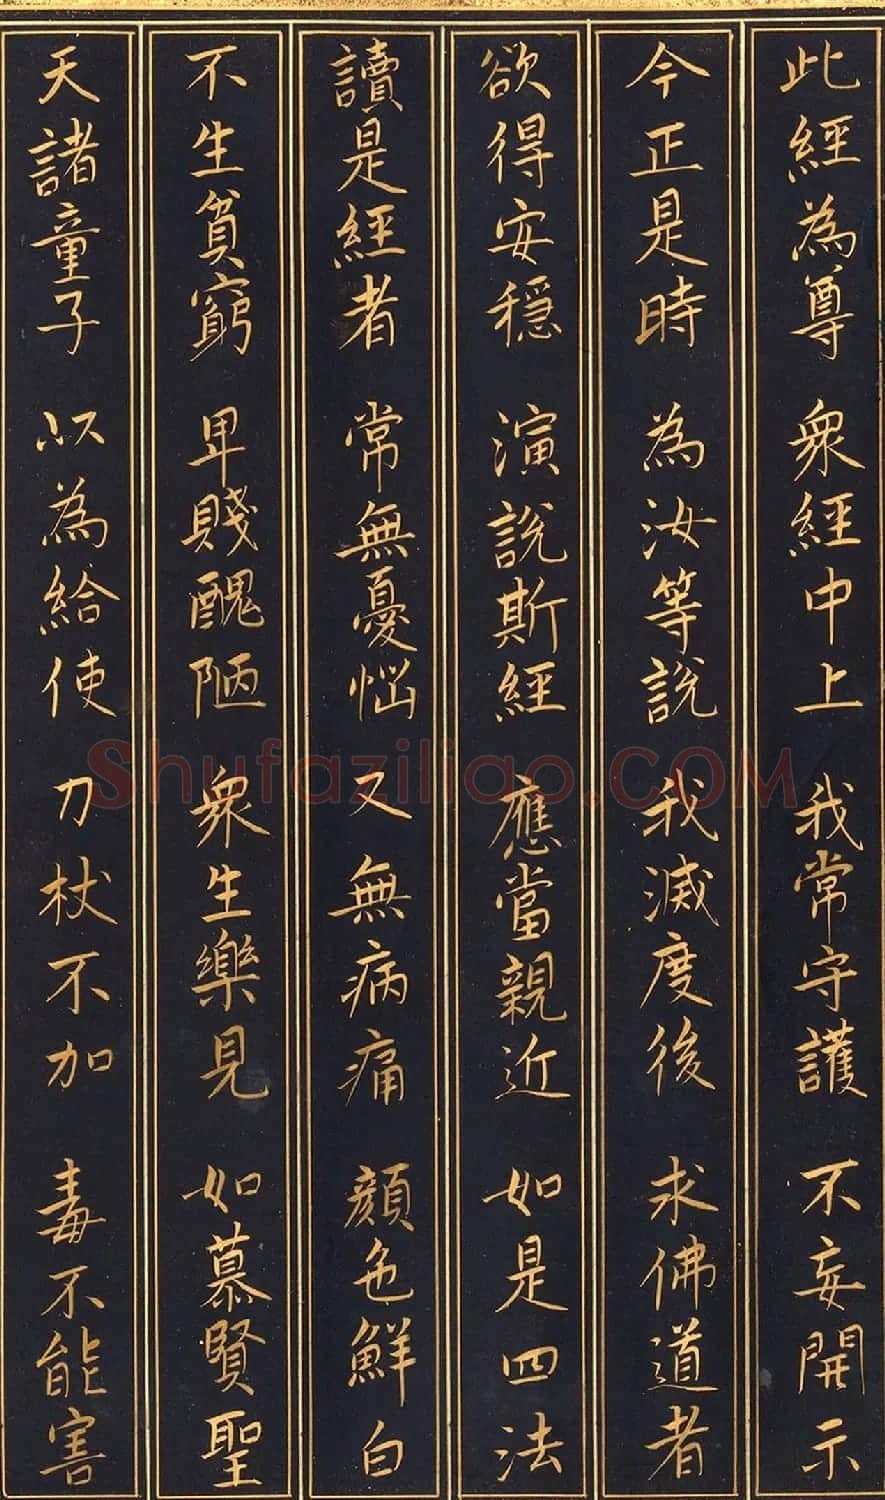 此經為尊 衆經中上 我常守護 不妄開示
今正是時 為汝等說 我滅度後 求佛道者
欲得安穩 演說斯經 應當親近 如是四法
讀是經者 常無憂惱 又無病痛 顏色鮮白
不生貧窮 卑賤醜陋 衆生樂見 如慕賢聖
天諸童子 以為給使 刀杖不加 毒不能害
Shufaziliao.COM